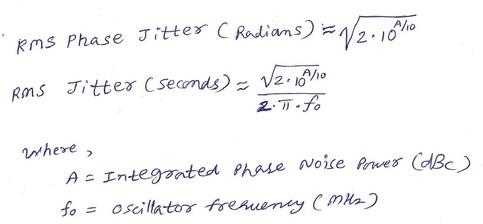 RMS Phase Jitter (Radians) ≈ √2·10^A/10
RMS Jitter (seconds) ≈ √2·10^A/10 / 2·π·f₀
where,
A = Integrated Phase Noise Power (dBc)
f₀ = oscillator frequency (MHz)